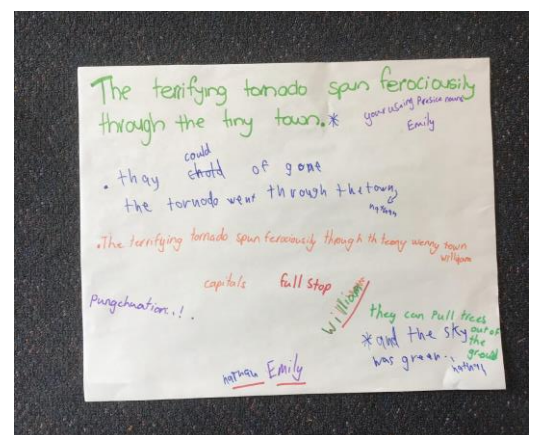 The terrifying tornado spun ferociously
through the tiny town.*
your using Persice nouns
Emily
could
• thay chold of gone
the tornado went through the town
nathan
•The terrifying tornado spun ferociously through th teeny weeny town
william
capitals full stop
Pungchuation..!.
William
they can Pull trees
out of
the
ground
*and the sky
was green..
nathan
nathan Emily